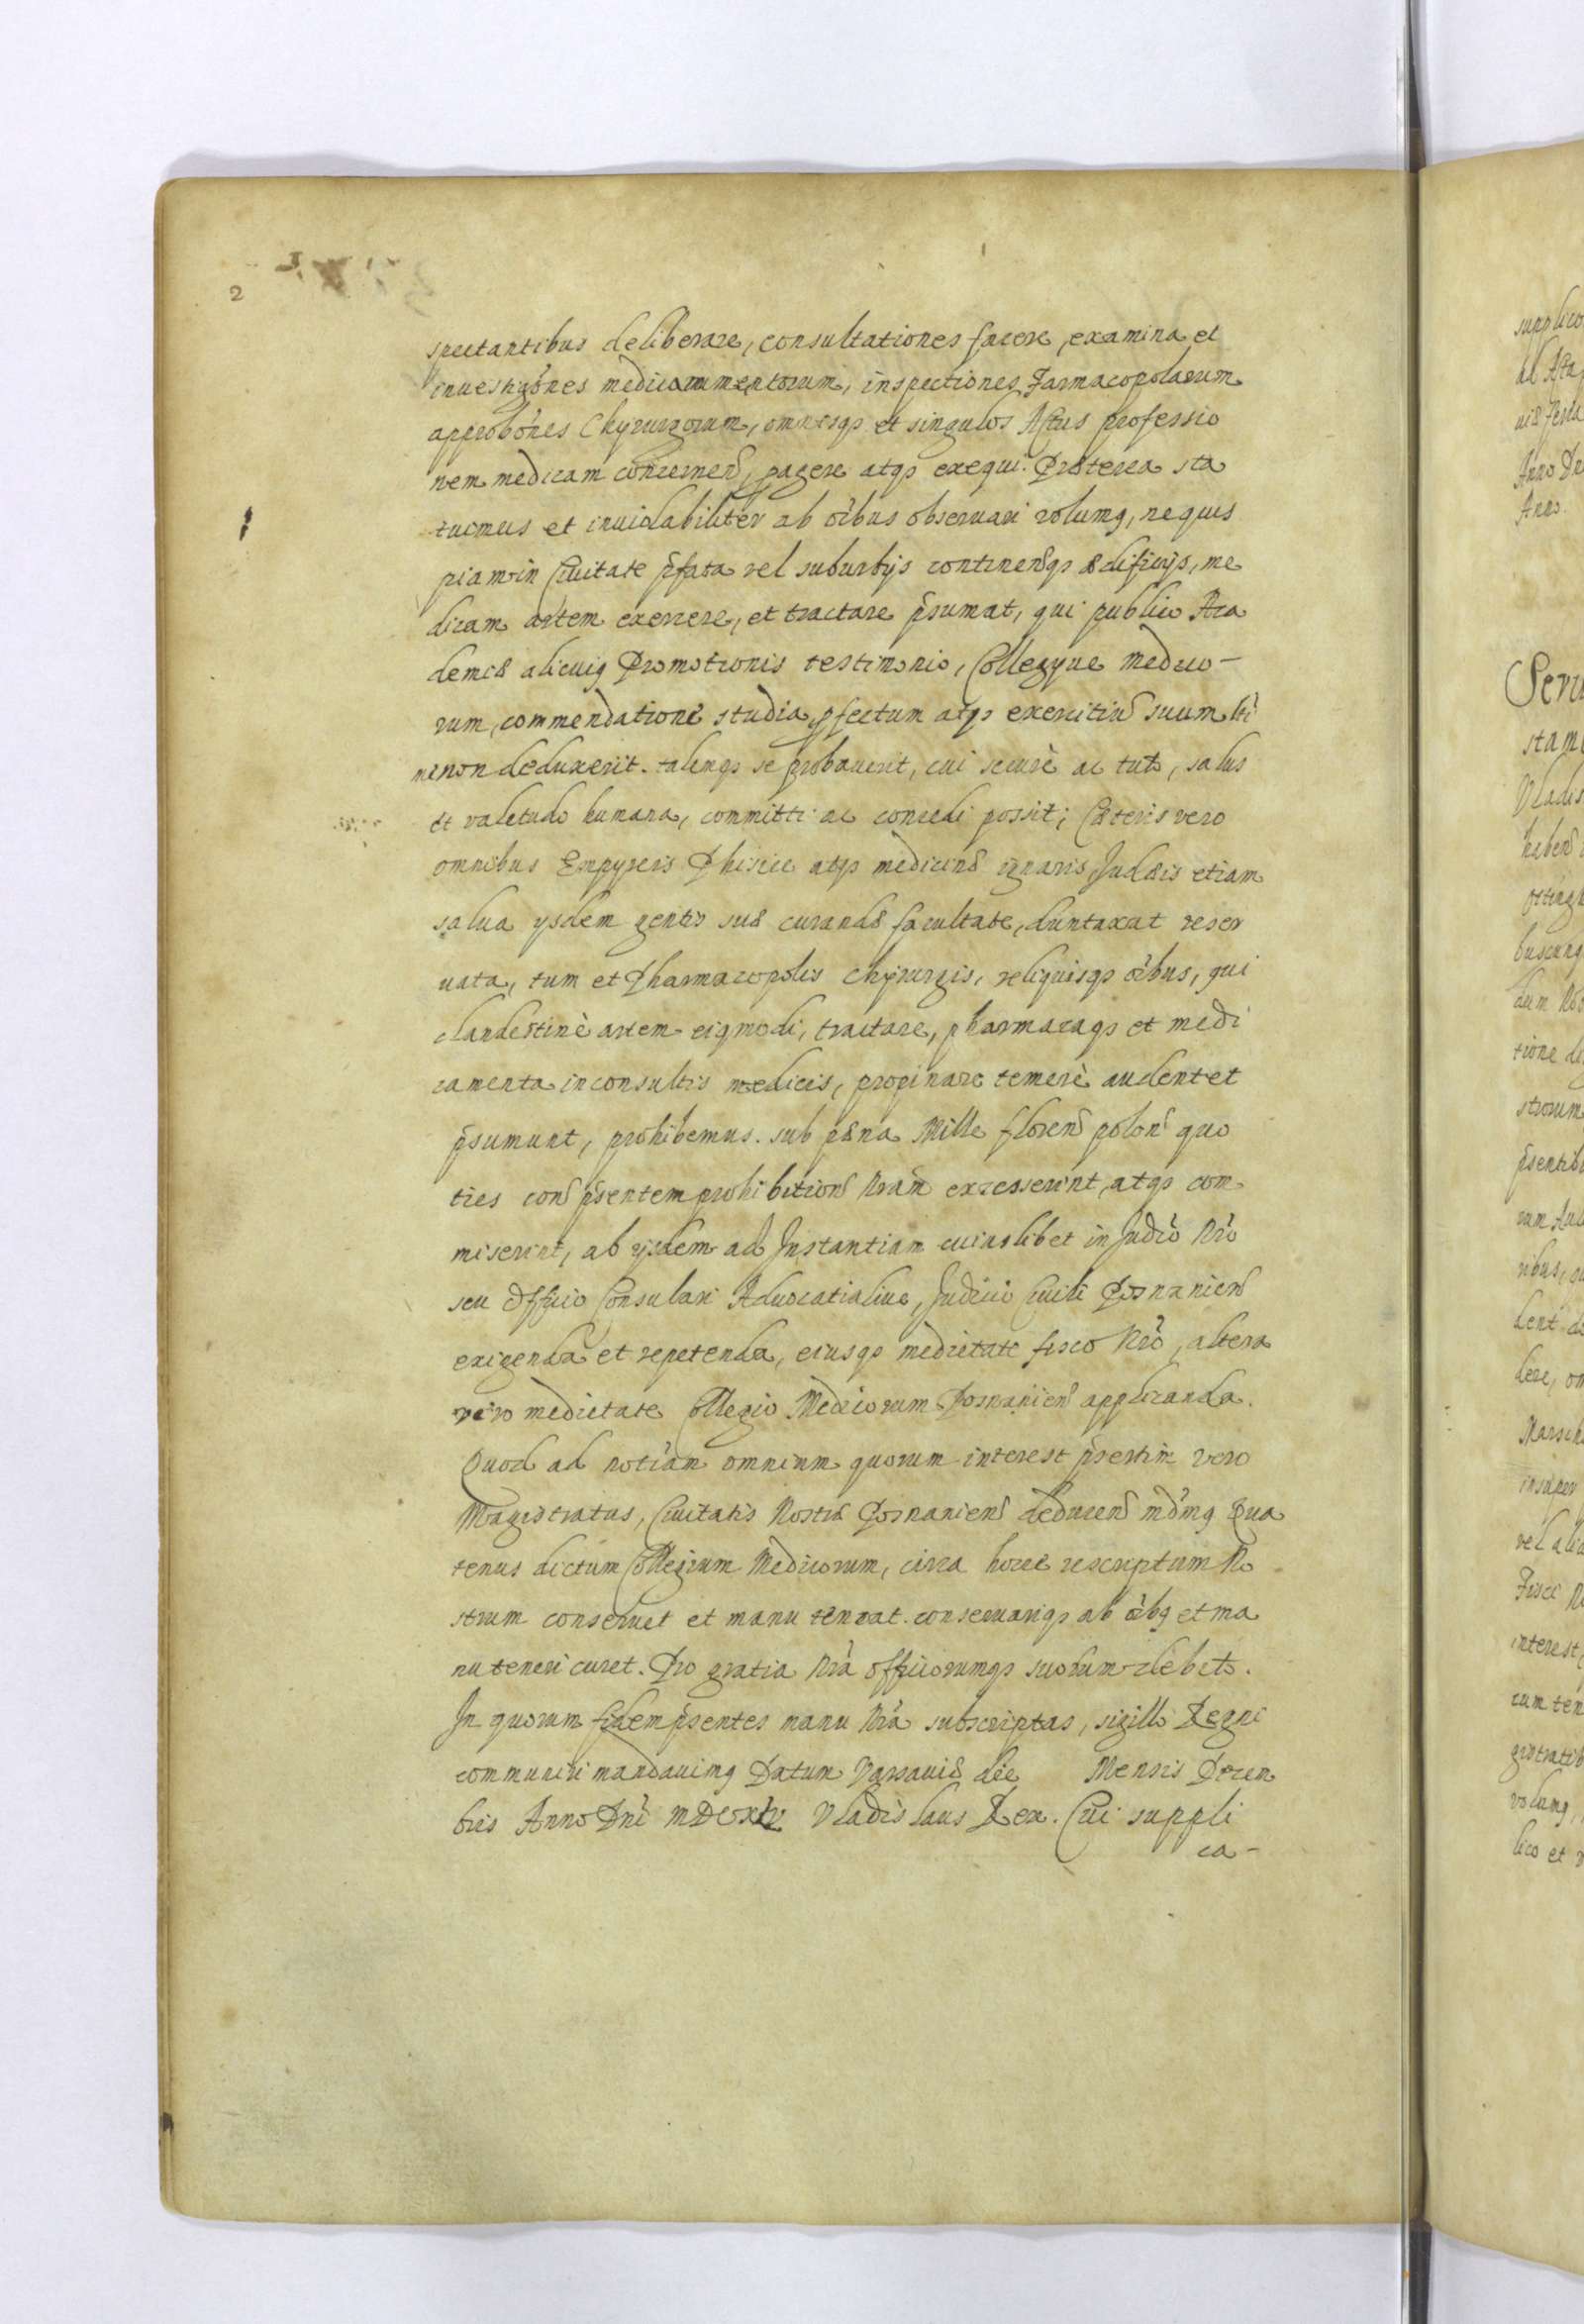 2
spectantibus deliberare, consultationes facere, examina et
inuestigõnes medicamentorum, inspectiones Farmacopolarum
approbõnes Chyrurgorum, omnesqȝ et singulos Actus professio
nem medicam concernen, pagere atqȝ exequi. Præterea sta
tuimus et inuiolabiliter ab oibus obseruari volumꝯ, ne quis
piam in Ciuitate p̃fata vel suburbijs continenqȝ ædificijs, me
dicam artem exercere, et tractare p̃sumat, qui publico Aca
demiæ alicuiꝯ Promotionis testimonio, Collegyue Medico-
rum, commendatione studia, ꝓfectum atqȝ exercitiũ suum
ne non deduxerit. talemqȝ se probauerit, cui securè ac tutò, salus
et valetudo humana, committi ac concedi possit; Cæteris vero
omnibus Empyreis Phisice atqȝ medicinæ ignaris, Judæis etiam
salua ysdem gentis suæ curandæ facultate, duntaxat reser
uata, tum et Pharmacopolis Chyrurgis, reliquisqȝ oibus, qui
clandestinè artem eiꝯmodi, tractare, pharmacaqȝ et medi
camenta inconsultis medicis, propinare temerè audent et
p̃sumunt, prohibemus. sub pæna Mille floren polon quo
ties con p̃sentem prohibition Nram excesserint, atqȝ com
miserint, ab ysdem ad Instantiam cuiuslibet in Judio Nro
seu Officio Consulari Aduocatialiue, Judicio Ciuili Posnanien
exigenda et repetenda, eiusqȝ medietate fisco Nro, altera
vero medietate Collegio Medicorum Posnanien applicanda.
Quod ad notiam omnium quorum interest p̃sertim vero
Magistratus, Ciuitatis Nostræ Posnanien deducen mdmꝯ Qua
tenus dictum Collegium Medicorum, circa hocce rescriptum No
strum conseruet et manu teneat. conseruariqȝ ab oibꝯ et ma
nu teneri curet. Pro gratia Nra officiorumqȝ suorum debito.
In quorum fidem p̃sentes manu Nra subscriptas, sigillo Regni
communiri mandauimꝯ Datum Varsauiæ die Mensis Decem
bris Anno Dni Vladislaus Rex. Cui suppli
ca-